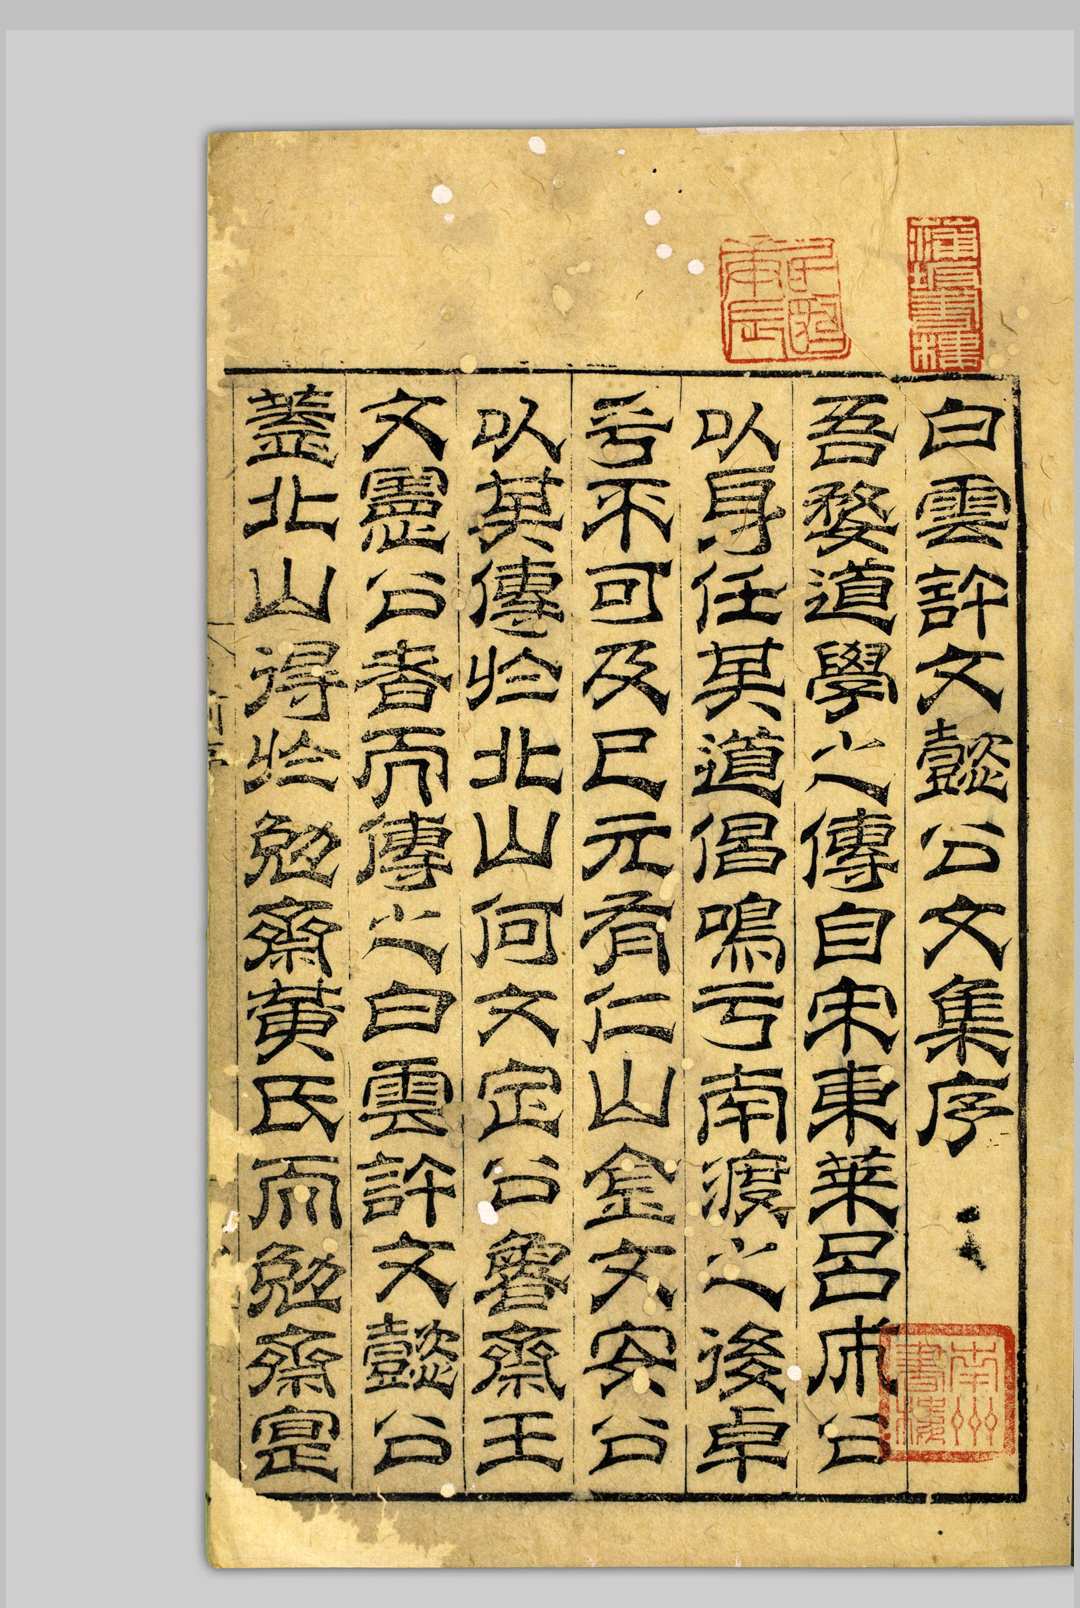 白雲許文懿公文集序
吾婺道學之傳自宋東萊呂成公
以身任其道倡鳴于南渡之後卓
乎不可及已元有仁山金文安公
以其傳於北山何文定公魯齋王
文憲公者而傳之白雲許文懿公
蓋北山得於勉齋黃氏而勉齋寔
南州書樓